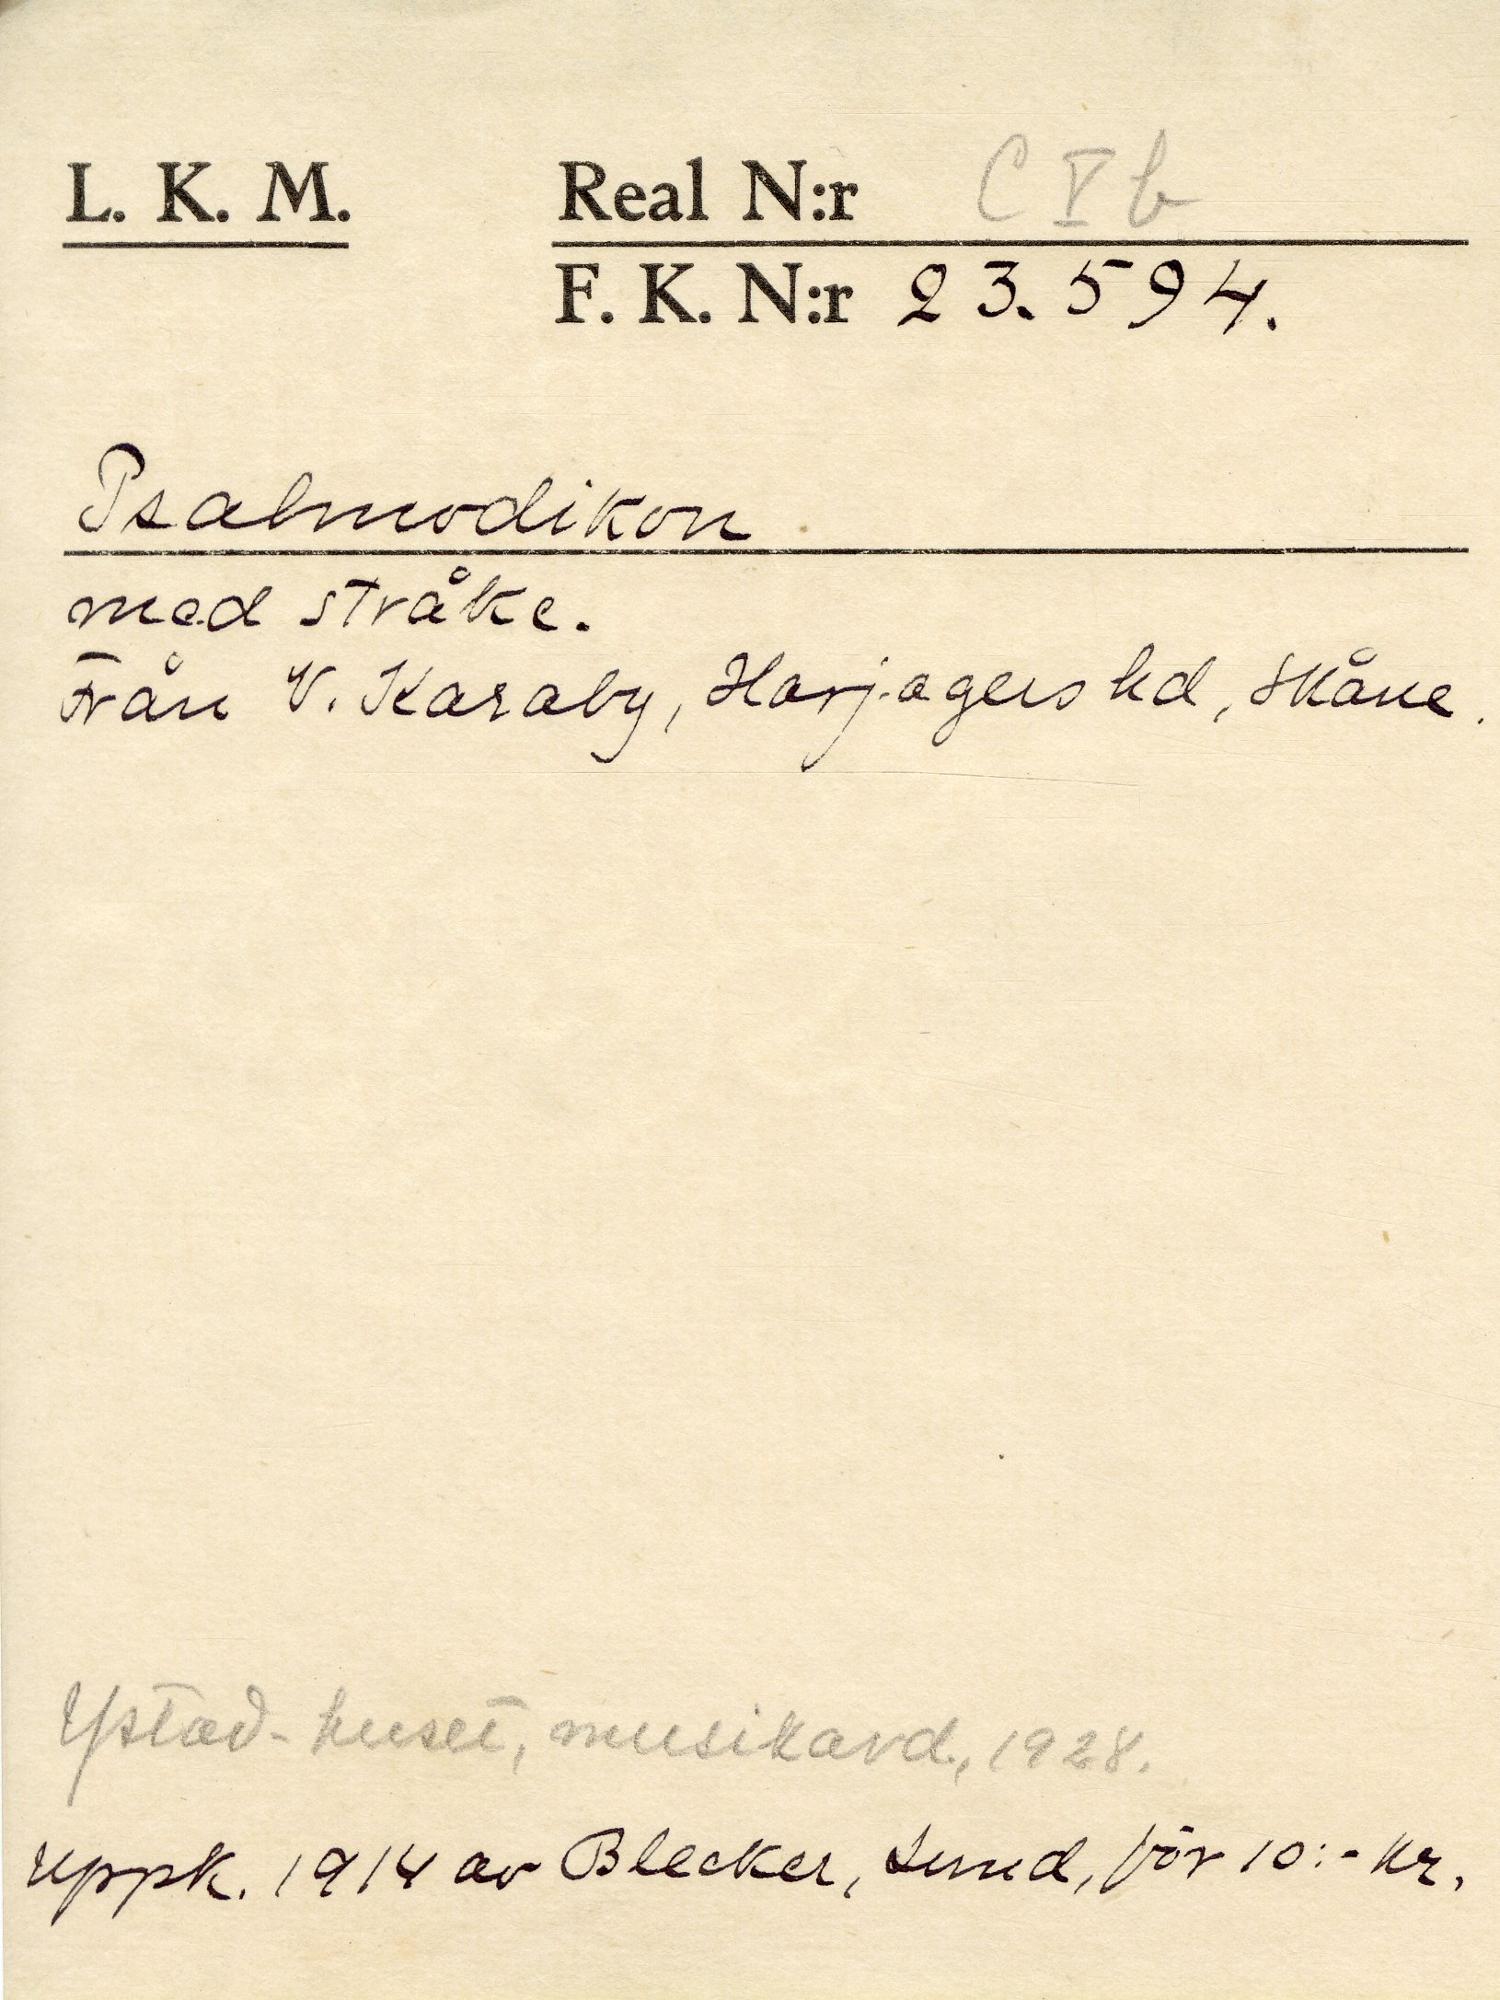 L. K. M. Real N:r C V b
F. K. N:r 23.594.
Psalmodikon
med stråke.
Från V. Karaby, Harjagers hd, Skåne.
Ystad-huset, musikavd., 1928.
Uppk. 1914 av Blecker, Lund, för 10:- kr.